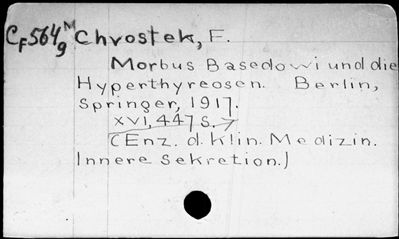 CF564g M Chvostek, F.
Morbus Basedowi und die
Hyperthyreosen. Berlin,
Springer, 1917.
XVI, 447 S.
(Enz. d. Klin. Medizin.
Innere Sekretion.)